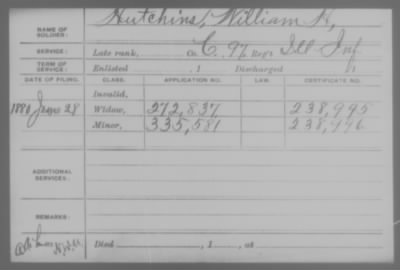 NAME OF SOLDIER: Hutchins, William H.
SERVICE: Late rank, Co. C, 97 Reg't Ill Inf.
TERM OF SERVICE: Enlisted , 1 Discharged , 1
DATE OF FILING. CLASS. APPLICATION NO. LAW. CERTIFICATE NO.
Invalid,
1880 28 Widow, 272,837 238,995
Minor, 335,581 238,996
ADDITIONAL SERVICES:
REMARKS:
Died , 1 , at